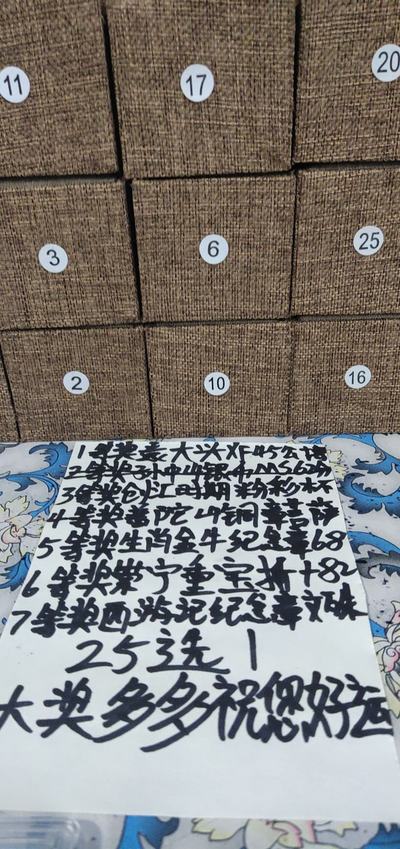 11
17
20
3
6
25
2
10
16
1等奖袁大头XF45公博
2等奖孙中山银币MS62分
3等奖 时期粉彩杯
4等奖普陀山铜章菩萨
5等奖生肖金牛纪念章68
6等奖崇宁重宝折十82
7等奖西游记纪念章
25选1
大奖多多祝您好运